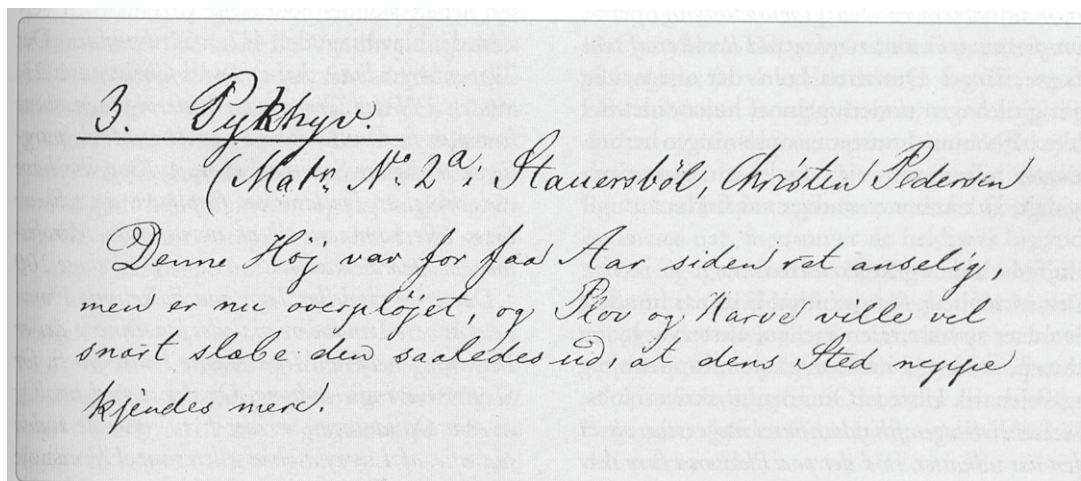 3. Dykhyv
(Matr. No. 2a. Stauersböl, Christen Pedersen
Denne Høj var for faa Aar siden ret anselig,
men er nu overpløjet, og Plov og Harve ville vel
snart slæbe den saaledes ud, at dens Sted neppe
kjendes mere!